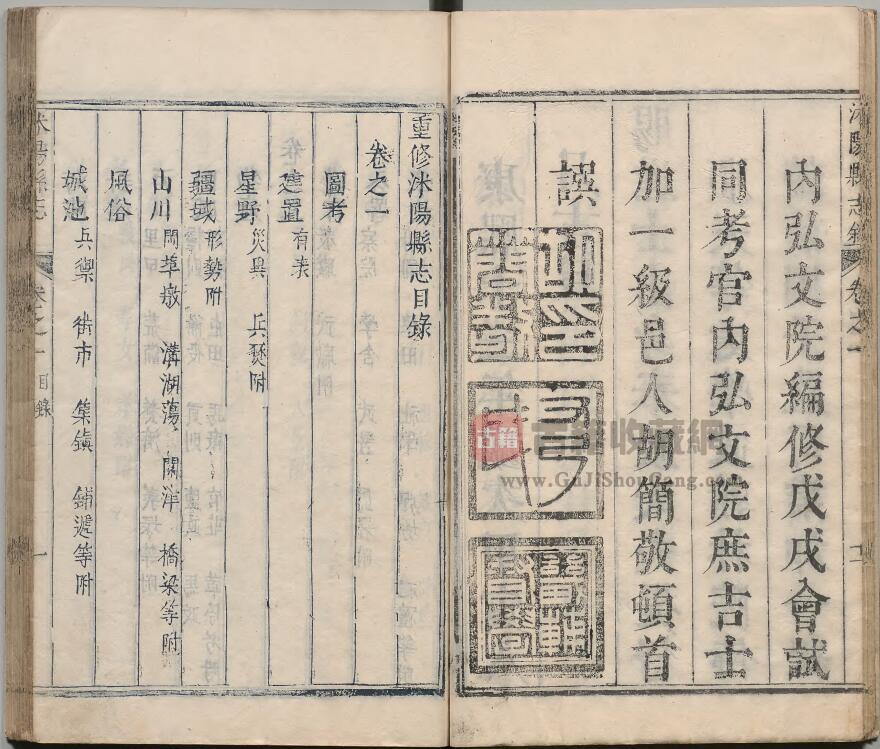 內弘文院編修戊戌會試
同考官內弘文院庶吉士
加一級邑人胡簡敬頓首
譔
古籍
古籍收藏網
www.GuJiShouCang.com
沭陽縣志
卷之一
重修沭陽縣志目錄
卷之一
圖考
建置 有表
星野 災異 兵燹附
疆域 形勢附
山川 溝湖蕩 關津 橋梁等附
風俗
城池 兵禦 街市 集鎮 鋪遞等附
沭陽縣志
卷之一 目錄
一